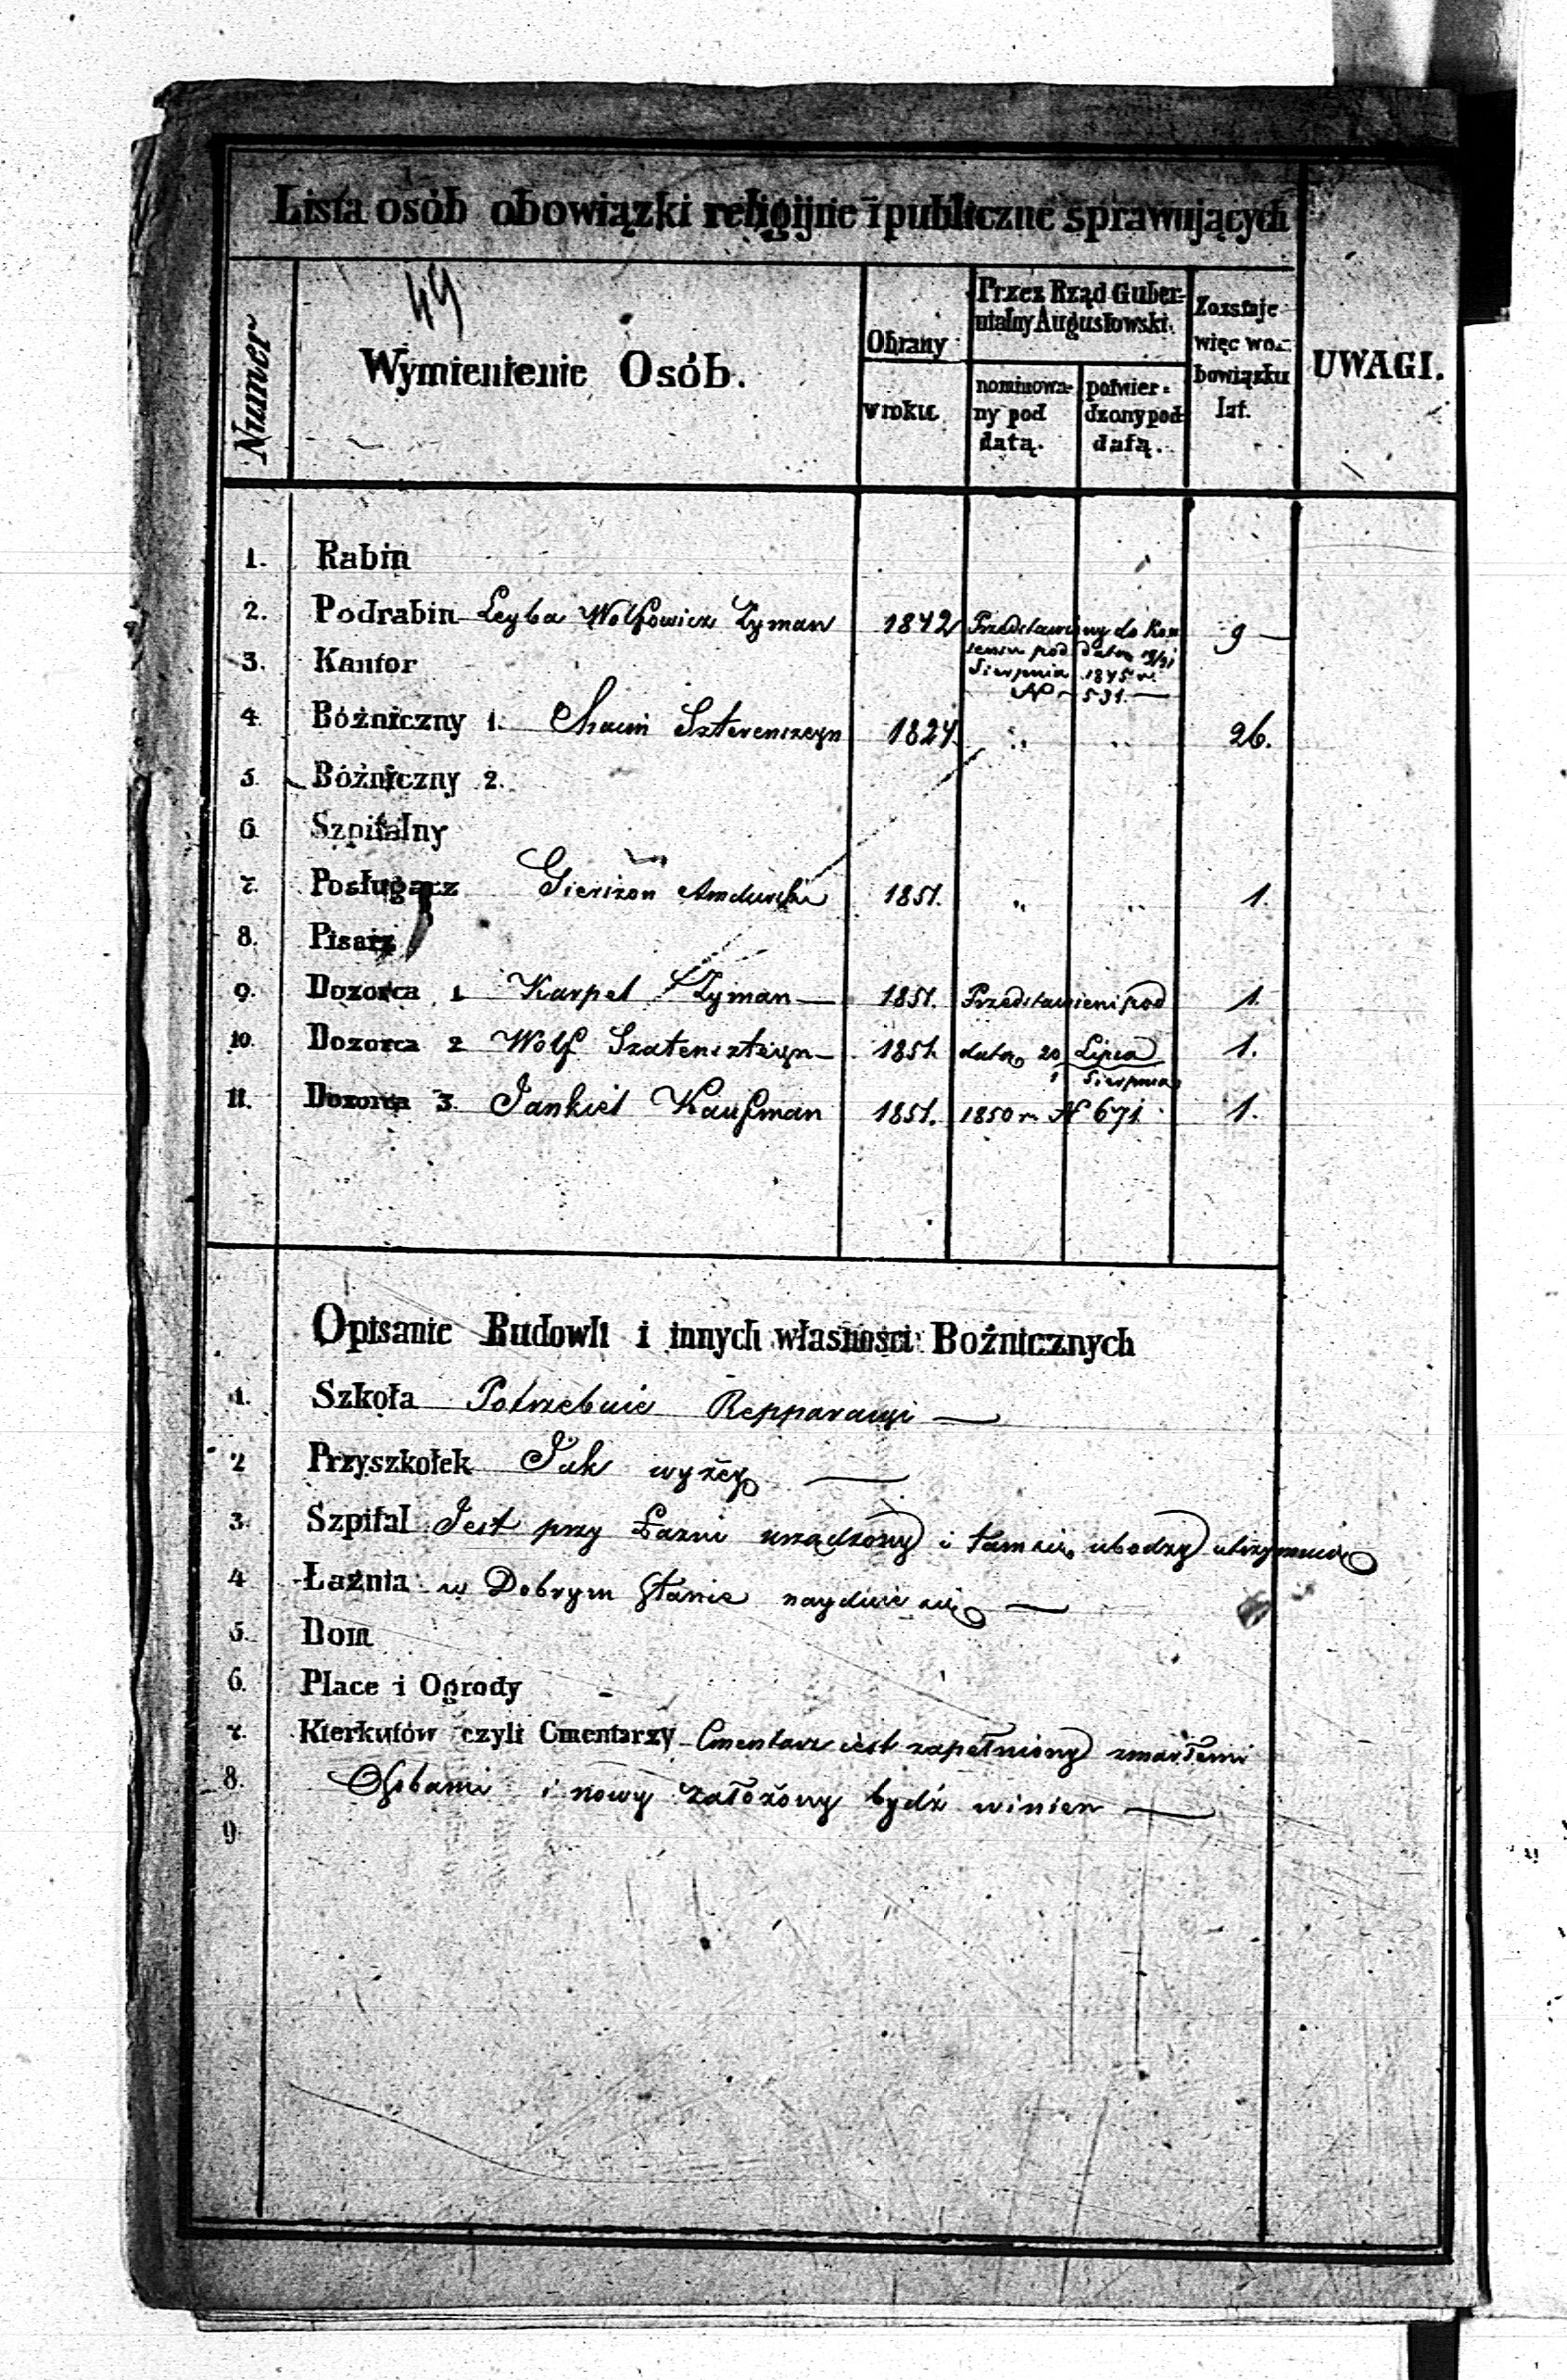 Lista osób obowiązki religijne i publiczne sprawujących
49
Numer
Wymienienie Osób.
Obrany
w roku.
Przez Rząd Guber-
nialny Augustowski.
nominowa-
ny pod
datą.
potwier-
dzony pod
datą.
Zozstaje
więc wo-
bowiązku
lat.
UWAGI.
1. Rabin
2. Podrabin Leyba Wolfowicz Zyman 1842 Przedstawiony do 9
pod datą
3. Kantor Sierpnia 1845 r.
N 531.
4. Bóżniczny 1. Chaim Szterenszteyn 1824. " " 26.
5. Bóżniczny 2.
6. Szpitalny
7. Posługacz Gierszon Amdurski 1851. " " 1.
8. Pisarz
9. Dozorca 1 Karpel Zyman 1851. Przedstawieni pod 1.
10. Dozorca 2 Wolf Szatenszteyn 1851. datą 20 Lipca 1.
1 Sierpnia
11. Dozorca 3. Jankiel Kaufman 1851. 1850 r. N 671. 1.
Opisanie Budowli i innych własności Bożnicznych
1. Szkoła Potrzebuie Repparacyi
2 Przyszkołek Jak wyżey
3. Szpital Jest przy Łazni urządzony i tam się ubodzy utrzymuią
4 Łaźnia w Dobrym stanie nayduie się
5. Dom
6. Place i Ogrody
7. Kierkutów czyli Cmentarzy Cmentarz iest zapełniony zmarłemi
8. Osobami i nowy założony bydź winien
9